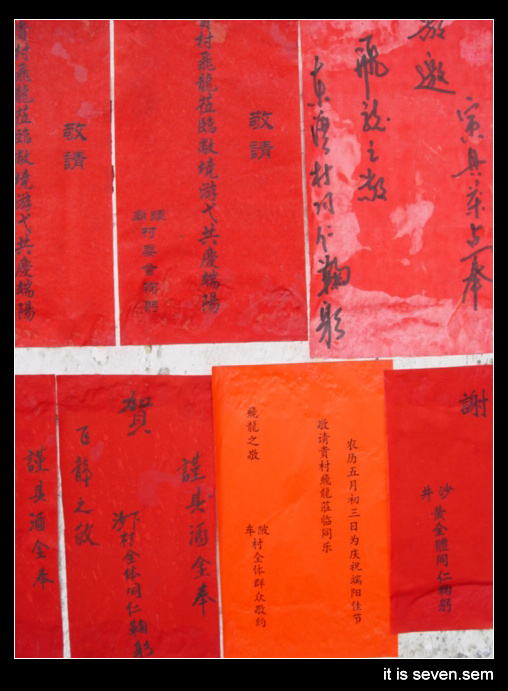 貴村飛龍蒞臨敝境游弋共慶端陽
敬請
貴村飛龍蒞臨敝境游弋共慶端陽
敬請
村委會鞠躬
敬邀
飛龍之敬
東漕村同仁鞠躬
寅具菲点奉
謹具酒金奉
賀
謹具酒金奉
飞龍之敬
下沙村全体同仁鞠躬
农历五月初三日为庆祝端阳佳节
敬请貴村飛龍莅临同乐
飛龍之敬
陂車村全体群众敬约
謝
沙井黄全體同仁鞠躬
it is seven.sem